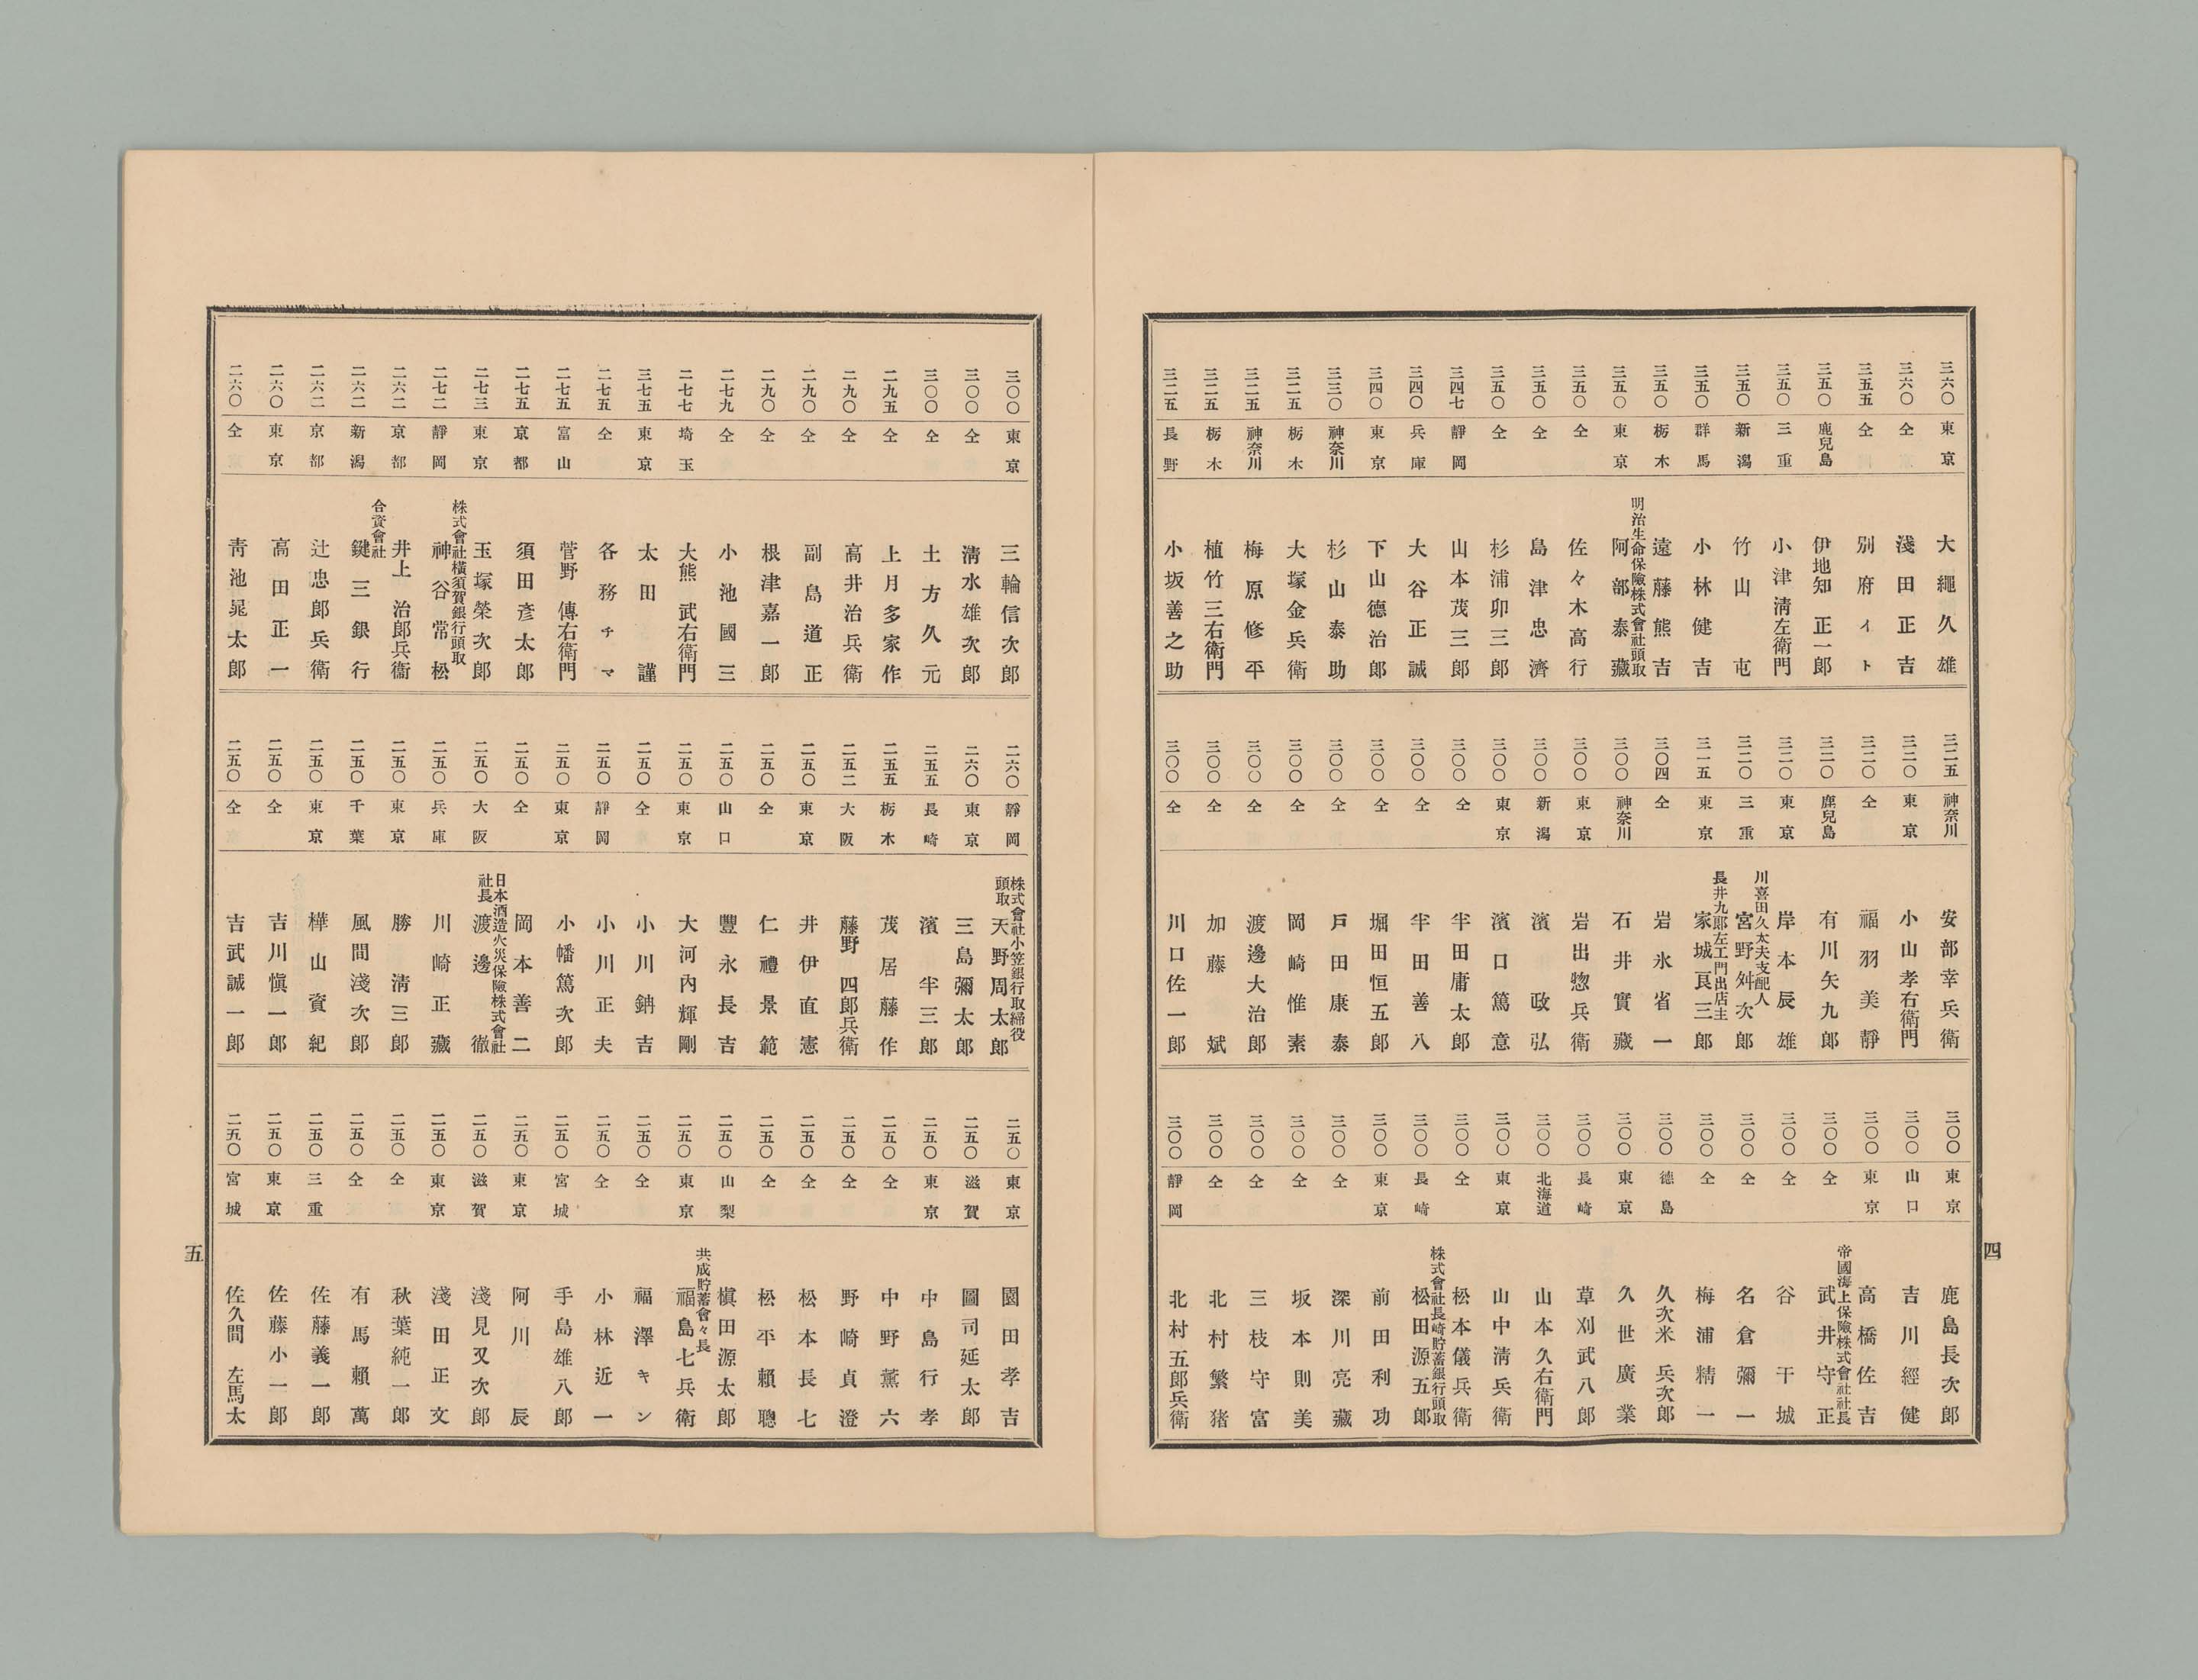 三六〇 東京 大繩久雄
三六〇 仝 淺田正吉
三五五 仝 別府イト
三五〇 鹿兒島 伊地知正一郎
三五〇 三重 小津淸左衛門
三五〇 新潟 竹山屯
三五〇 群馬 小林健吉
三五〇 栃木 遠藤熊吉
三五〇 東京 明治生命保險株式會社頭取 阿部泰藏
三五〇 仝 佐々木高行
三五〇 仝 島津忠濟
三五〇 仝 杉浦卯三郎
三四七 靜岡 山本茂三郎
三四〇 兵庫 大谷正誠
三四〇 東京 下山德治郎
三三〇 神奈川 杉山泰助
三二五 栃木 大塚金兵衛
三二五 神奈川 梅原修平
三二五 栃木 植竹三右衛門
三二五 長野 小坂善之助
三二五 神奈川 安部幸兵衛
三二〇 東京 小山孝右衛門
三二〇 仝 福羽美靜
三二〇 鹿兒島 有川矢九郎
三二〇 東京 岸本辰雄
三二〇 三重 川喜田久太夫支配人 宮野舛次郎
三一五 東京 長井九郎左工門出店主 家城良三郎
三〇四 仝 岩永省一
三〇〇 神奈川 石井實藏
三〇〇 東京 岩出惣兵衛
三〇〇 新潟 濱政弘
三〇〇 東京 濱口篤意
三〇〇 仝 半田庸太郎
三〇〇 仝 半田善八
三〇〇 仝 堀田恒五郎
三〇〇 仝 戸田康泰
三〇〇 仝 岡崎惟素
三〇〇 仝 渡邊大治郎
三〇〇 仝 加藤斌
三〇〇 仝 川口佐一郎
三〇〇 東京 鹿島長次郎
三〇〇 山口 吉川經健
三〇〇 東京 高橋佐吉
三〇〇 仝 帝國海上保險株式會社社長 武井守正
三〇〇 仝 谷干城
三〇〇 仝 名倉彌一
三〇〇 仝 梅浦精一
三〇〇 德島 久次米兵次郎
三〇〇 東京 久世廣業
三〇〇 長崎 草刈武八郎
三〇〇 北海道 山本久右衛門
三〇〇 東京 山中淸兵衛
三〇〇 仝 松本儀兵衛
三〇〇 長崎 株式會社長崎貯蓄銀行頭取 松田源五郎
三〇〇 東京 前田利功
三〇〇 仝 深川亮藏
三〇〇 仝 坂本則美
三〇〇 仝 三枝守富
三〇〇 仝 北村繁猪
三〇〇 靜岡 北村五郎兵衛
四
三〇〇 東京 三輪信次郎
三〇〇 仝 淸水雄次郎
三〇〇 仝 土方久元
二九五 仝 上月多家作
二九〇 仝 高井治兵衛
二九〇 仝 副島道正
二九〇 仝 根津嘉一郎
二七九 仝 小池國三
二七七 埼玉 大熊武右衛門
三七五 東京 太田謹
二七五 仝 各務チマ
二七五 富山 菅野傳右衛門
二七五 京都 須田彥太郎
二七三 東京 玉塚榮次郎
二七二 靜岡 株式會社橫須賀銀行頭取 神谷常松
二六二 京都 井上治郎兵衞
二六二 新潟 合資會社 鍵三銀行
二六二 京都 辻忠郎兵衛
二六〇 東京 高田正一
二六〇 仝 靑池晁太郎
二六〇 靜岡 株式會社小笠銀行取締役頭取 天野周太郎
二六〇 東京 三島彌太郎
二五五 長崎 濱半三郎
二五五 栃木 茂居藤作
二五二 大阪 藤野四郎兵衛
二五〇 東京 井伊直憲
二五〇 仝 仁禮景範
二五〇 山口 豐永長吉
二五〇 東京 大河內輝剛
二五〇 仝 小川鈉吉
二五〇 靜岡 小川正夫
二五〇 東京 小幡篤次郎
二五〇 仝 岡本善二
二五〇 大阪 日本酒造火災保險株式會社社長 渡邊徹
二五〇 兵庫 川崎正藏
二五〇 東京 勝淸三郎
二五〇 千葉 風間淺次郎
二五〇 東京 樺山資紀
二五〇 仝 吉川愼一郎
二五〇 仝 吉武誠一郎
二五〇 東京 園田孝吉
二五〇 滋賀 圖司延太郎
二五〇 東京 中島行孝
二五〇 仝 中野薰六
二五〇 仝 野崎貞澄
二五〇 仝 松本長七
二五〇 仝 松平賴聰
二五〇 山梨 槇田源太郎
二五〇 東京 共成貯蓄會々長 福島七兵衛
二五〇 仝 福澤キン
二五〇 仝 小林近一
二五〇 宮城 手島雄八郎
二五〇 東京 阿川辰
二五〇 滋賀 淺見又次郎
二五〇 東京 淺田正文
二五〇 仝 秋葉純一郎
二五〇 仝 有馬賴萬
二五〇 三重 佐藤義一郎
二五〇 東京 佐藤小一郎
二五〇 宮城 佐久間左馬太
五